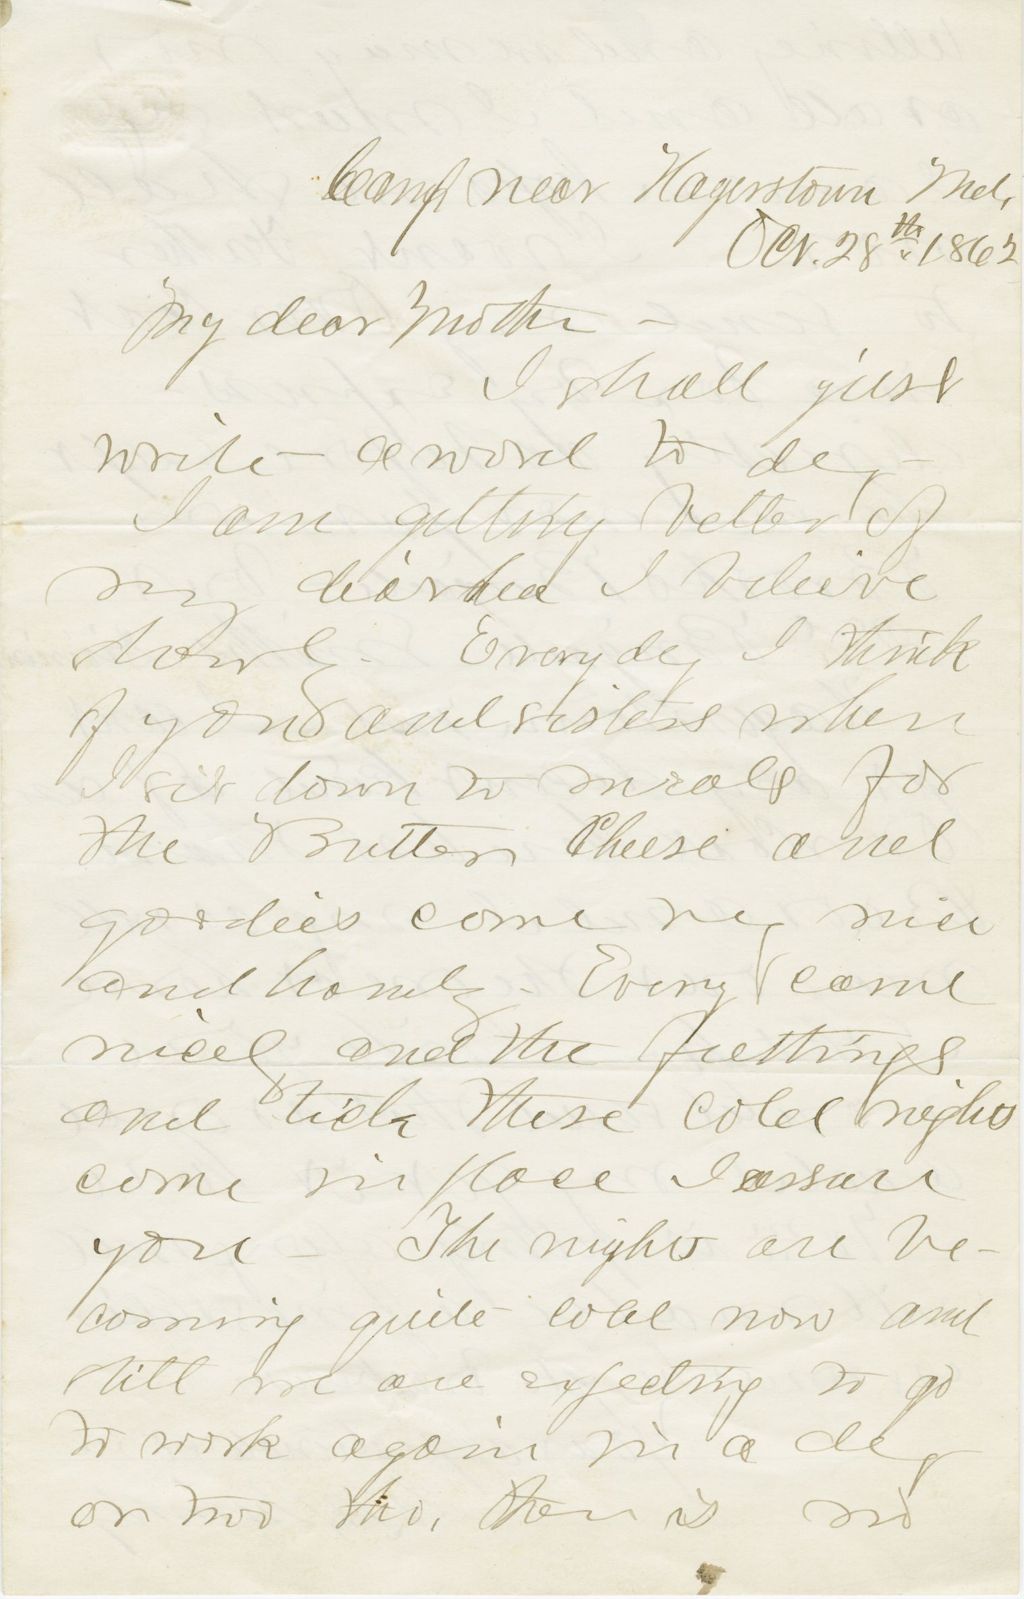 Camp near Hagerstown Md,
Oct. 28th, 1862
My dear Mother -
I shall just
write a word to day -
I am getting better of
my diarhea I believe
slowly. Every day I think
of you and sisters when
I sit down to meals for
the Butter Cheese and
goodies come very nice
and handy. Every came
nicely and the
and these cold nights
come in place I assure
you - The nights are be-
coming quite cold now and
still we are expecting to go
to work again in a day
or two tho, there is no